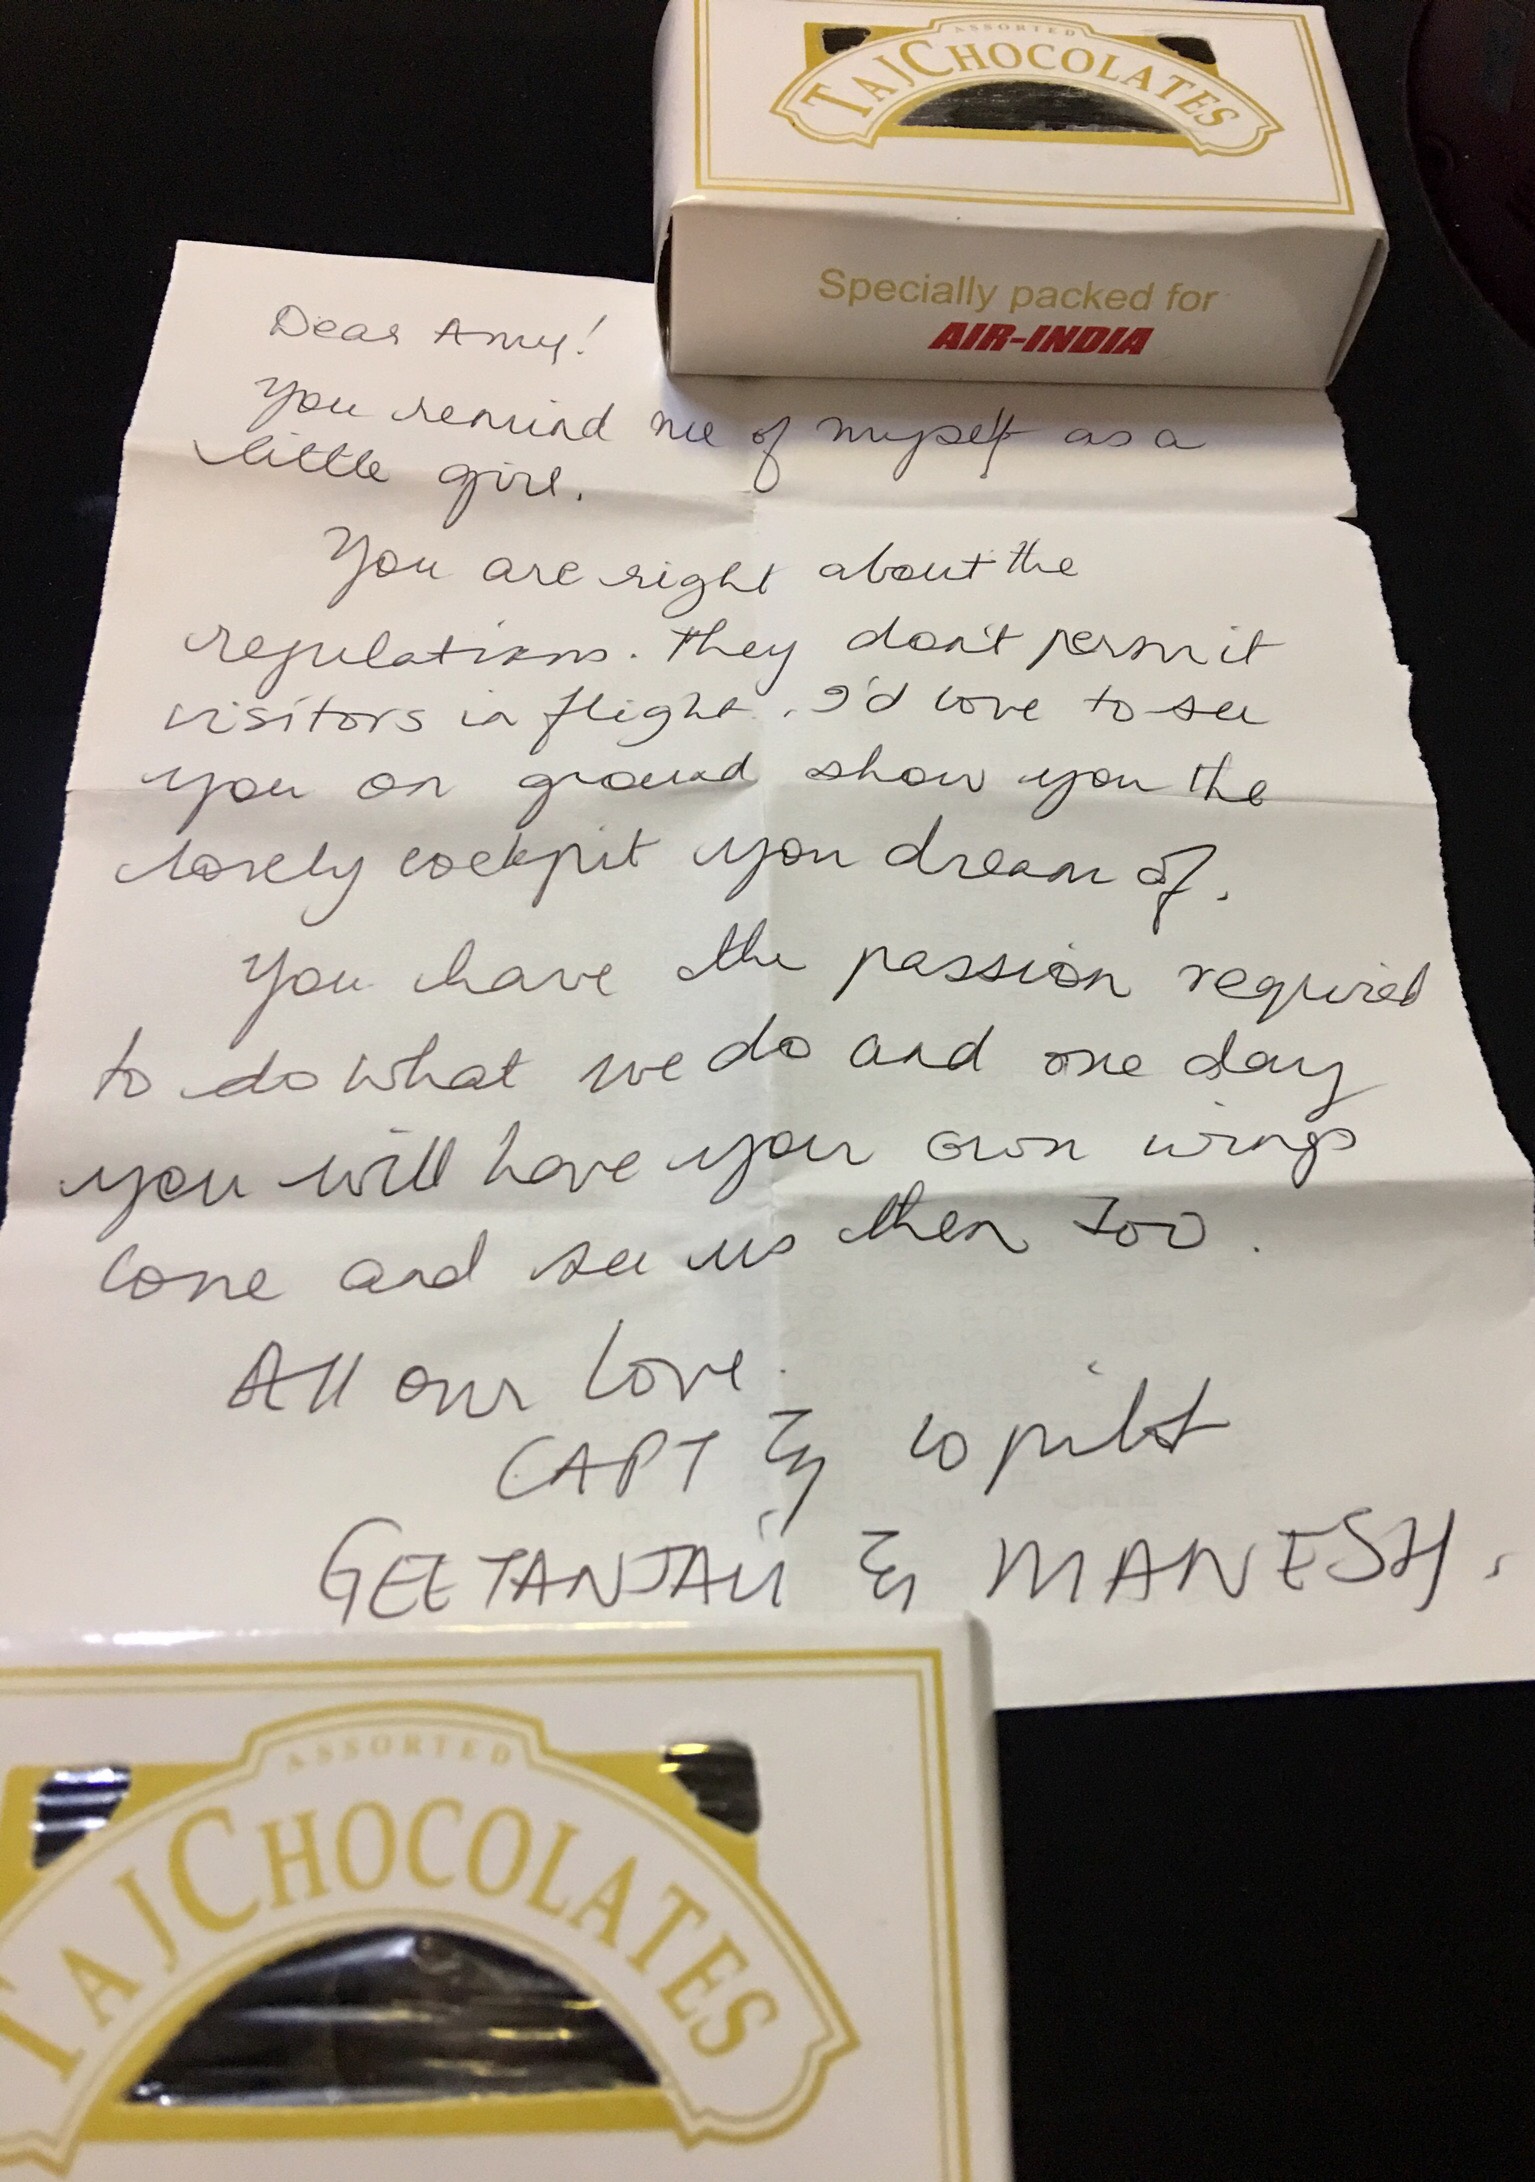 ASSORTED
TAJ CHOCOLATES
Specially packed for
AIR-INDIA
Dear Amy!
You remind me of myself as a
little girl.
You are right about the
regulations. They don't permit
visitors in flight. I'd love to see
you on ground show you the
lovely cockpit you dream of.
You have the passion required
to do what we do and one day
you will have your own wings
Come and see us then too.
All our love.
CAPT & co pilot
GEETANJALI & MANESH.
ASSORTED
TAJ CHOCOLATES